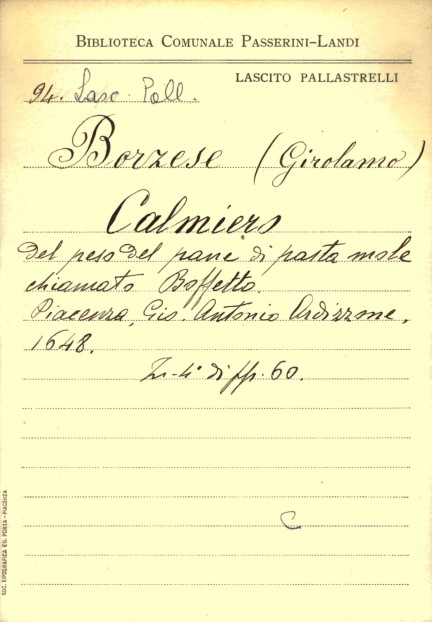 BIBLIOTECA COMUNALE PASSERINI-LANDI
LASCITO PALLASTRELLI
94. Lasc. Pall.
Borzese (Girolamo)
Calmiero
del peso del pane di pasta molle
chiamato Boffetto.
Piacenza, Gio. Antonio Ardizzone,
1648.
In-4° di pp. 60.
C
SOC. TIPOGRAFICA ED. PORTA - PIACENZA